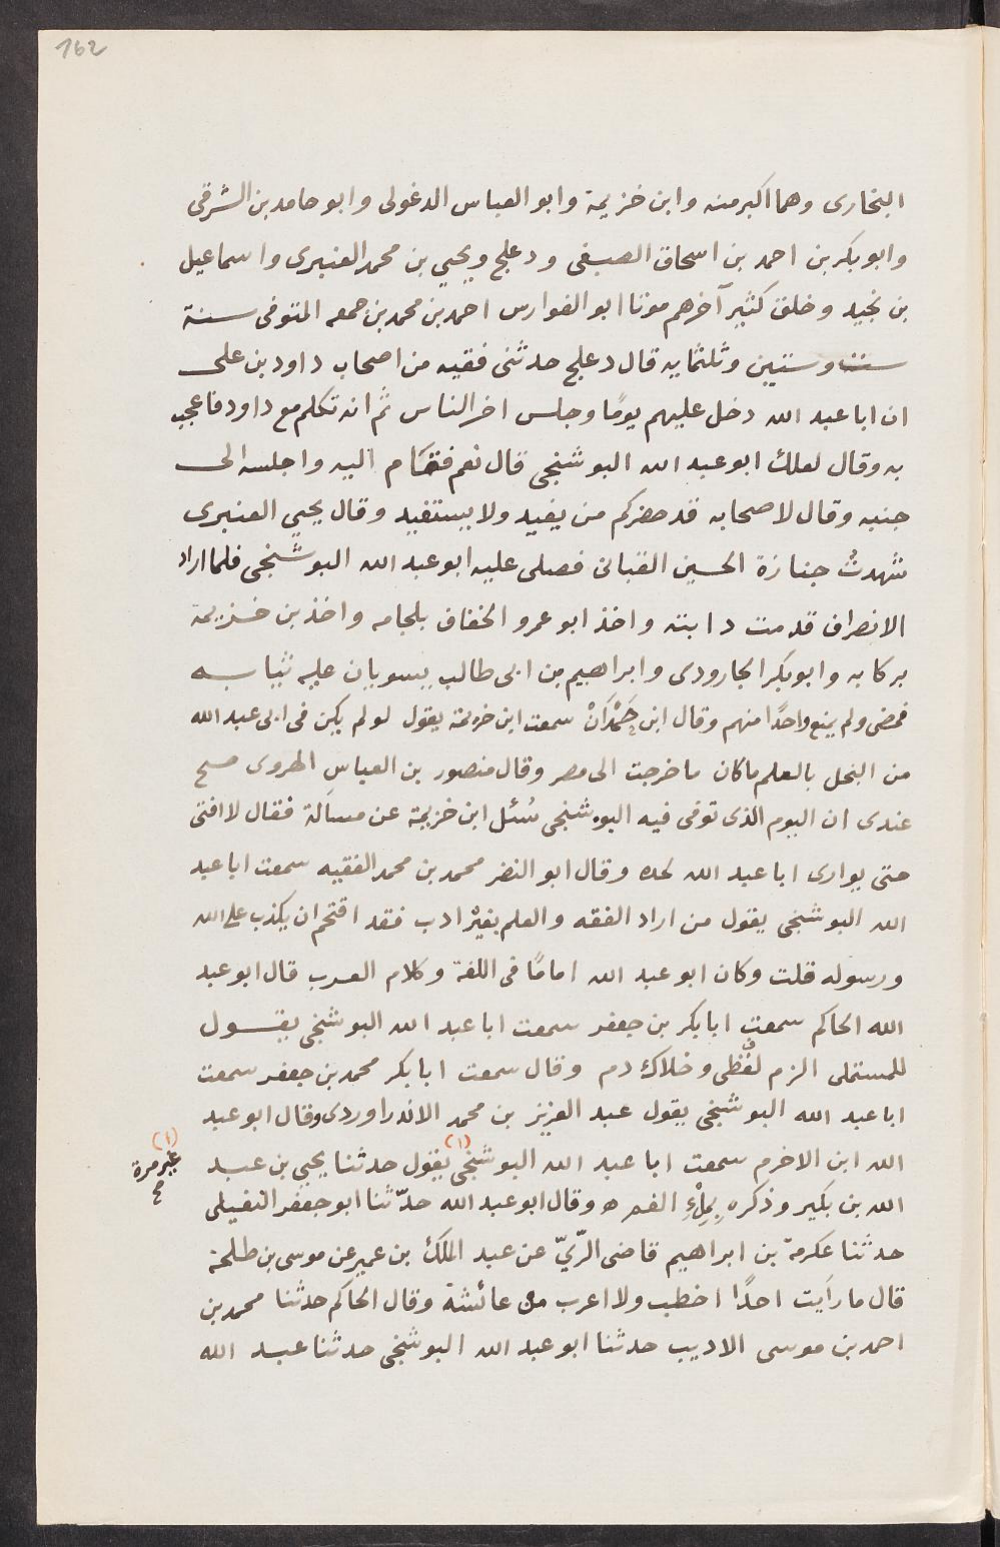 162
البخارى وهما اكبر منه وابن خزيمة وابو العباس الدغولى وابو حامد بن الشرقى
وابو بكر بن احمد بن اسحاق الصبغى ودعلج ويحيي بن محمد العنبرى واسماعيل
بن نجيد وخلق كثير آخرهم موتا ابو الفوارس احمد بن محمد بن جمعه المتوفى سنة
ست وستين وثلثمايه قال دعلج حدثنى فقيه من اصحاب داود بن على
ان ابا عبد الله دخل عليهم يومًا وجلس اخر الناس ثم انه تكلم مع داود فاعجب
به وقال لعلك ابو عبد الله البوشنجى قال نعم فقام اليه واجلسه الى
جنبه وقال لاصحابه قد حضركم من يفيد ولا يستفيد وقال يحيي العنبرى
شهدتُ جنازة الحسين القبانى فصلى عليه ابو عبد الله البوشنجى فلما اراد
الانصراف قدمت دابته واخذ ابو عمرو الخفاف بلجامه واخذ بن خزيمة
بركابه وابو بكر الجارودى وابراهيم بن ابى طالب يسويان عليه ثيابه
فمضى ولم يمنع واحدًا منهم وقال ابن حَمْدَانْ سمعت ابن خزيمة يقول لو لم يكن فى ابى عبد الله
من البخل بالعلم ما كان ما خرجت الى مصر وقال منصور بن العباس الهروى صح
عندى ان اليوم الذى توفى فيه البوشنجى سُئل ابن خزيمة عن مسألة فقال لا افتى
حتى يوارى ابا عبد الله لحده وقال ابو النضر محمد بن محمد الفقيه سمعت ابا عبد
الله البوشنجى يقول من اراد الفقه والعلم بغير ادب فقد اقتحم ان يكذب على الله
ورسوله قلت وكان ابو عبد الله امامًا فى اللغة وكلام العرب قال ابو عبد
الله الحاكم سمعت ابا بكر بن جعفر سمعت ابا عبد الله البوشنجى يقول
للمستملى الزم لفظى وخلاك دم وقال سمعت ابا بكر محمد بن جعفر سمعت
ابا عبد الله البوشنجى يقول عبد العزيز بن محمد الاندراوردى وقال ابو عبد
الله ابن الاخرم سمعت ابا عبد الله البوشنجى (١) يقول حدثنا يحيي بن عبد
(١) غير مرة صح
الله بن بكير وذكره بِمِلْءِ الفم ه وقال ابو عبد الله حدّثنا ابو جعفر النفيلى
حدثنا عكرمة بن ابراهيم قاضى الرّيّ عن عبد الملك بن عمير عن موسى بن طلحة
قال ما رأيت احدًا اخطب ولا اعرب من عائشة وقال الحاكم حدثنا محمد بن
احمد بن موسى الاديب حدثنا ابو عبد الله البوشنجى حدثنا عبد الله